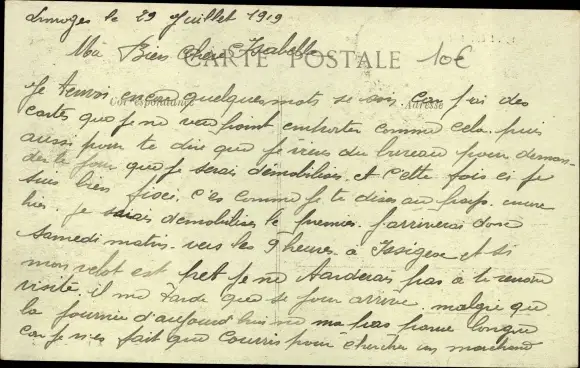 Limoges le 29 Juillet 1919
Ma Bien chere Isabelle
CARTE POSTALE
10€
Je tenvoi encore quelques mots se soir. Car j'ai des
Correspondance
Adresse
cartes que je ne veu point emporter comme cela. puis
aussi pour te dire que je viens du bureau pour deman-
der le jour que je serais démobilisé. et cette fois ci je
suis bien fixé. c'es comme je te disas au encore
hier je serais démobilisé le premier. j'arriverai donc
samedi matin. vers les 9 heures à Issigeac et si
mon velot est pret je ne tarderais pas à te rendre
visite. il me tarde que se jour arrive. malgré que
la journée d'aujourd'hui ne ma pas parue longue
car je n'es fait que courris pour chercher un marchand